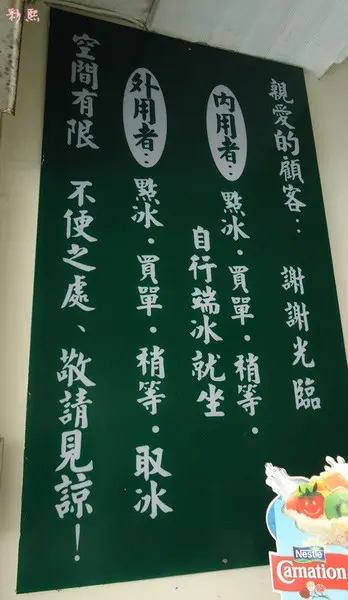 親愛的顧客:謝謝光臨
內用者:點冰·買單·稍等·
自行端冰就坐
外用者:點冰·買單·稍等·取冰
空間有限 不便之處、敬請見諒!
Nestlé
Carnation
彩熙